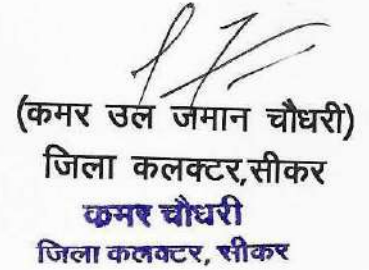 (कमर उल जमान चौधरी)
जिला कलक्टर,सीकर
कमर चौधरी
जिला कलक्टर, सीकर